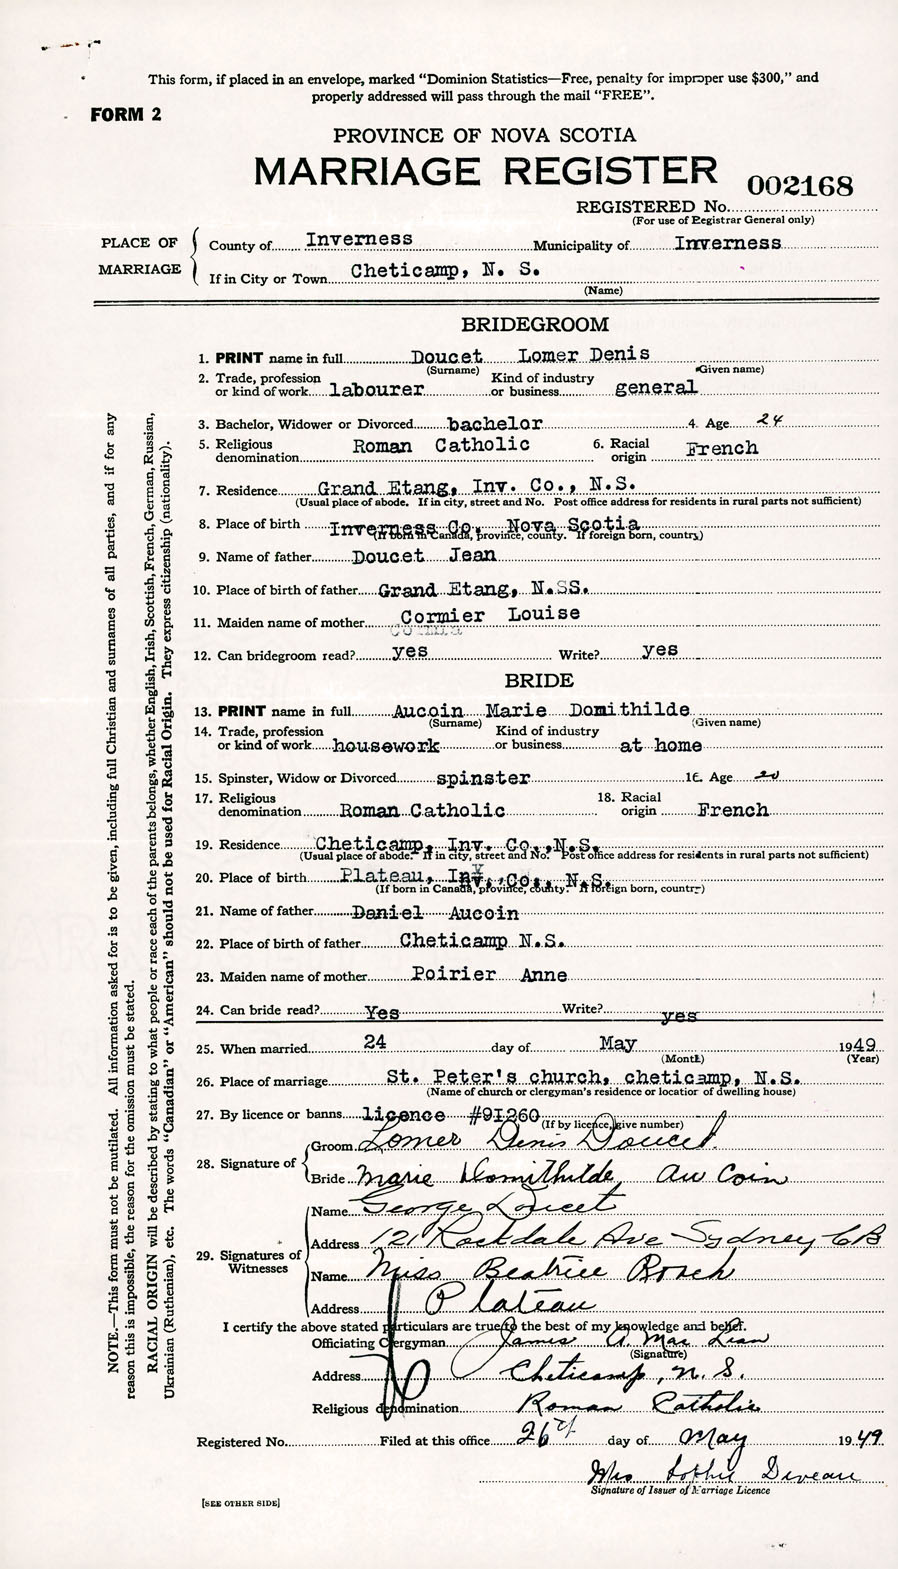 This form, if placed in an envelope, marked "Dominion Statistics—Free, penalty for improper use $300," and
properly addressed will pass through the mail "FREE".
FORM 2
PROVINCE OF NOVA SCOTIA
MARRIAGE REGISTER
002168
REGISTERED No.
(For use of Registrar General only)
PLACE OF MARRIAGE
County of Inverness Municipality of Inverness
If in City or Town Cheticamp, N. S.
(Name)
BRIDEGROOM
1. PRINT name in full Doucet Lomer Denis
(Surname) (Given name)
2. Trade, profession or kind of work labourer Kind of industry or business general
3. Bachelor, Widower or Divorced bachelor 4. Age 24
5. Religious denomination Roman Catholic 6. Racial origin French
7. Residence Grand Etang, Inv. Co., N.S.
(Usual place of abode. If in city, street and No. Post office address for residents in rural parts not sufficient)
8. Place of birth Inverness Co, Nova Scotia
(If born in Canada, province, county. If foreign born, country)
9. Name of father Doucet Jean
10. Place of birth of father Grand Etang, N.SS.
11. Maiden name of mother Cormier Louise
12. Can bridegroom read? yes Write? yes
BRIDE
13. PRINT name in full Aucoin Marie Domithilde
(Surname) (Given name)
14. Trade, profession or kind of work housework Kind of industry or business at home
15. Spinster, Widow or Divorced spinster 16. Age 20
17. Religious denomination Roman Catholic 18. Racial origin French
19. Residence Cheticamp, Inv. Co., N.S.
(Usual place of abode. If in city, street and No. Post office address for residents in rural parts not sufficient)
20. Place of birth Plateau, Inv., Co., N.S.
(If born in Canada, province, county. If foreign born, country)
21. Name of father Daniel Aucoin
22. Place of birth of father Cheticamp N.S.
23. Maiden name of mother Poirier Anne
24. Can bride read? Yes Write? yes
25. When married 24 day of May 1949
(Month) (Year)
26. Place of marriage St. Peter's church, cheticamp, N.S.
(Name of church or clergyman's residence or location of dwelling house)
27. By licence or banns licence #91260
(If by licence, give number)
28. Signature of
Groom Lomer Denis Doucet.
Bride Marie Domithilde Au Coin
29. Signatures of Witnesses
Name George Doucet
Address 121 Rockdale Ave Sydney CB
Name Miss Beatrice Roach
Address Plateau
I certify the above stated particulars are true to the best of my knowledge and belief.
Officiating Clergyman James A. Mac Lean
(Signature)
Address Cheticamp, N. S.
Religious denomination Roman Catholic
Registered No. Filed at this office 26th day of May 1949
Mrs Sophie Deveau
Signature of Issuer of Marriage Licence
[SEE OTHER SIDE]
NOTE.—This form must not be mutilated. All information asked for is to be given, including full Christian and surnames of all parties, and if for any
reason this is impossible, the reason for the omission must be stated.
RACIAL ORIGIN will be described by stating to what people or race each of the parents belongs, whether English, Irish, Scottish, French, German, Russian,
Ukrainian (Ruthenian), etc. The words "Canadian" or "American" should not be used for Racial Origin. They express citizenship (nationality).